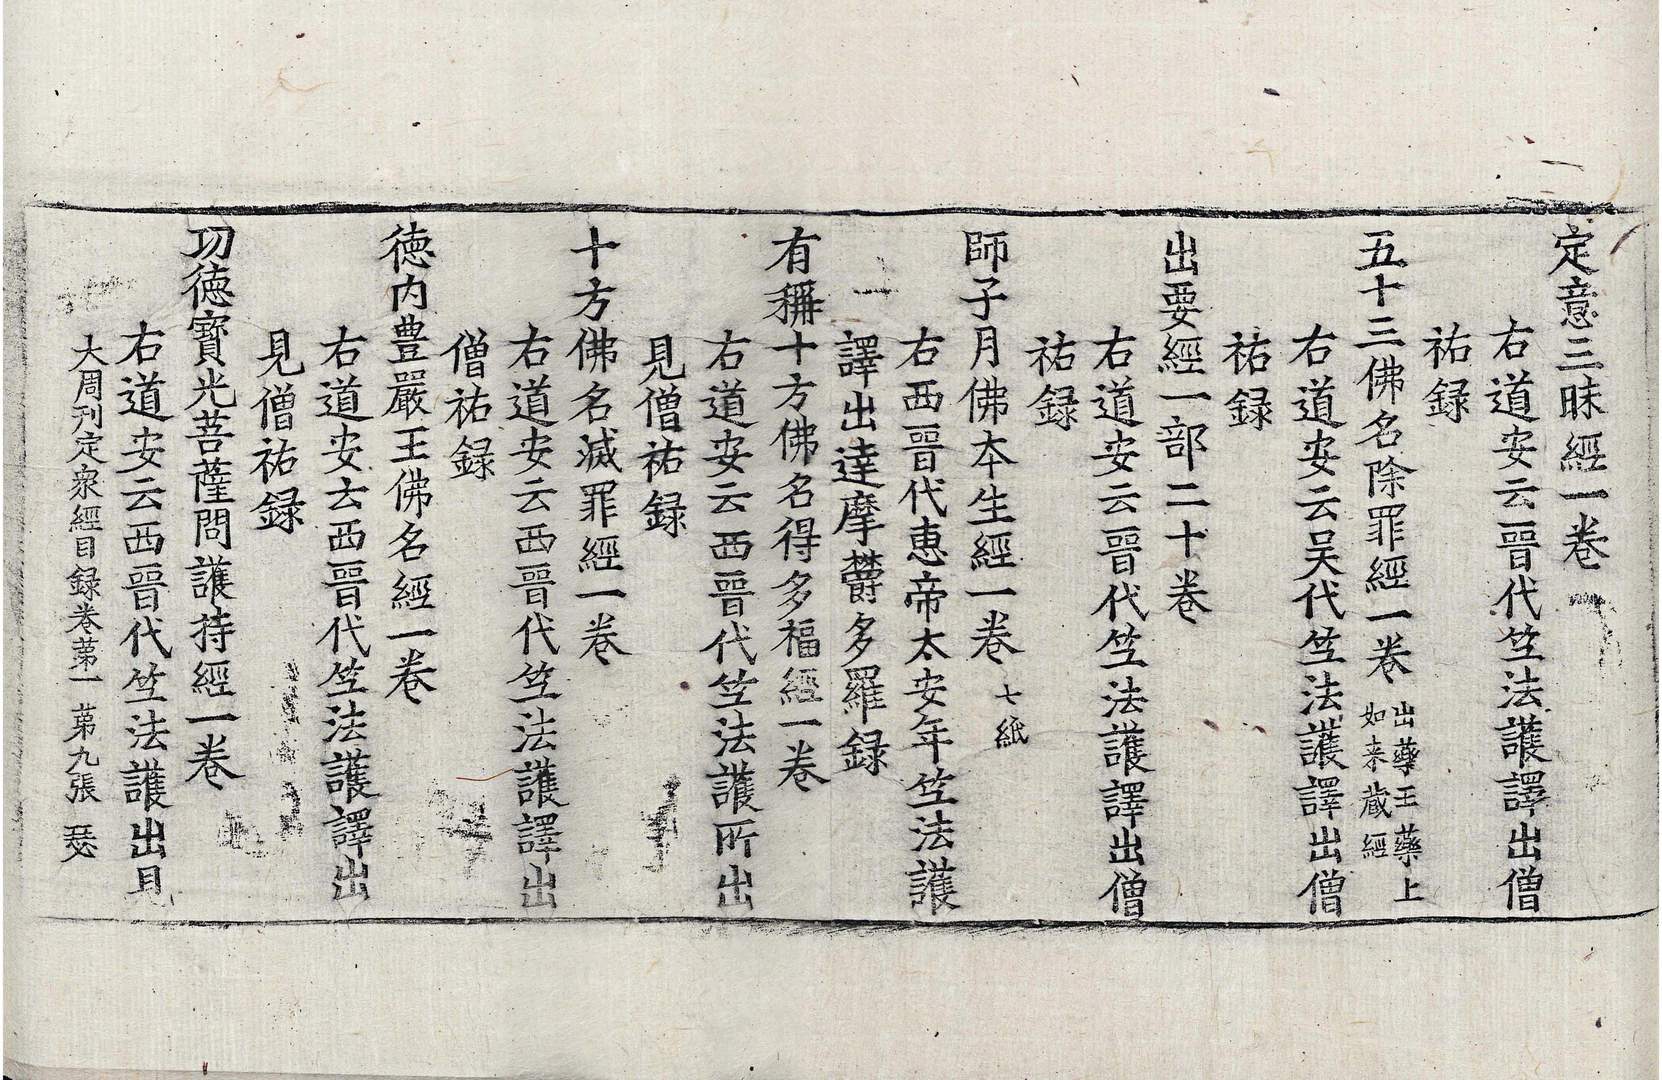 定意三昧經一卷
右道安云晉代竺法護譯出僧
祐録
五十三佛名除罪經一卷 出藥王藥上如来蔵經
右道安云吴代竺法護譯出僧
祐録
出要經一部二十卷
右道安云晉代竺法護譯出僧
祐録
師子月佛本生經一卷 七紙
右西晉代惠帝太安年竺法護
譯出達摩欝多羅録
有稱十方佛名得多福經一卷
右道安云西晉代竺法護所出
見僧祐録
十方佛名滅罪經一卷
右道安云西晉代竺法護譯出
僧祐録
徳内豊嚴王佛名經一卷
右道安云西晉代竺法護譯出
見僧祐録
功徳寳光菩薩問護持經一卷
右道安云西晉代竺法護出見
大周刊定衆經目録卷第一 第九張 瑟